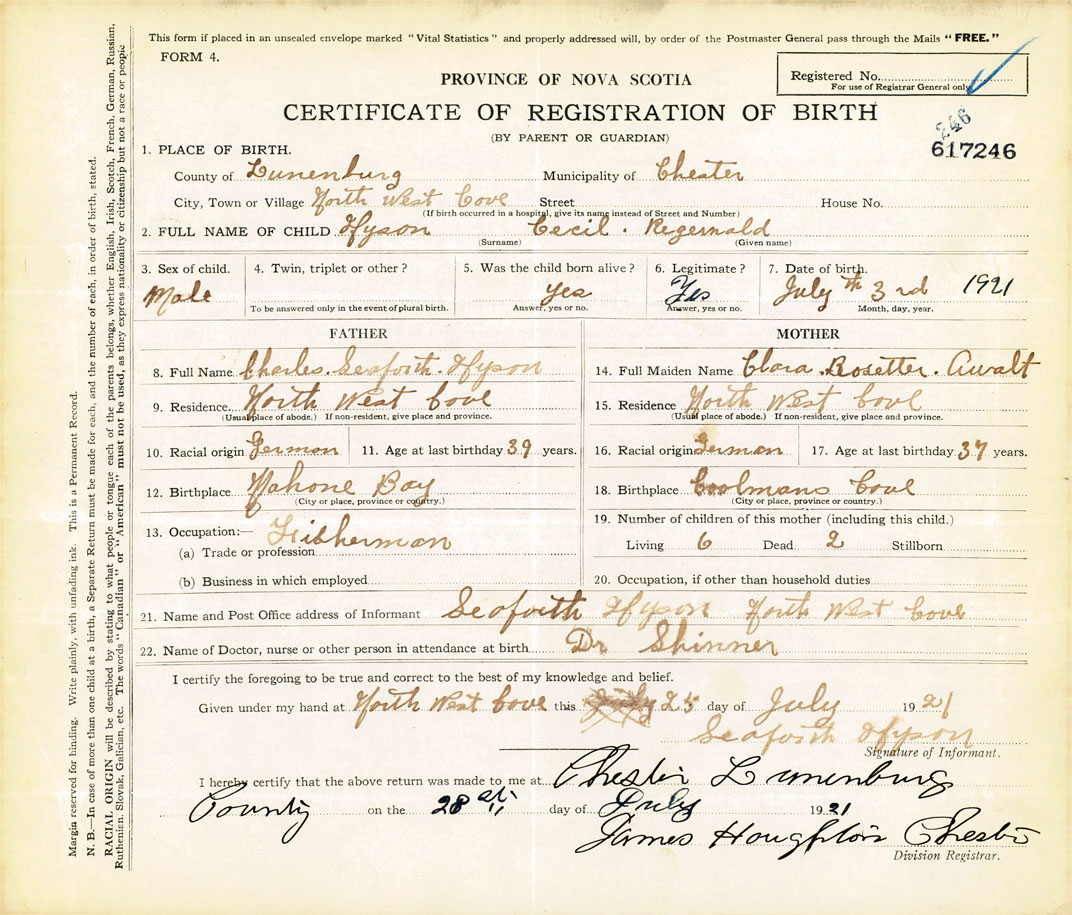 This form if placed in an unsealed envelope marked "Vital Statistics" and properly addressed will, by order of the Postmaster General pass through the Mails "FREE."
FORM 4.
Registered No.
For use of Registrar General only
PROVINCE OF NOVA SCOTIA
CERTIFICATE OF REGISTRATION OF BIRTH
(BY PARENT OR GUARDIAN)
246
617246
1. PLACE OF BIRTH.
County of Lunenburg Municipality of Chester
City, Town or Village North West Cove Street House No.
(If birth occurred in a hospital, give its name instead of Street and Number)
2. FULL NAME OF CHILD Hyson Cecil. Regernald
(Surname) (Given name)
3. Sex of child. 4. Twin, triplet or other? 5. Was the child born alive? 6. Legitimate? 7. Date of birth.
Male Yes Yes July th 3rd 1921
To be answered only in the event of plural birth. Answer, yes or no. Answer, yes or no. Month, day, year.
FATHER MOTHER
8. Full Name Charles. Seaforth. Hyson 14. Full Maiden Name Clara. Rosetter. Awalt
9. Residence North West Cove 15. Residence North West Cove
(Usual place of abode.) If non-resident, give place and province. (Usual place of abode.) If non-resident, give place and province.
10. Racial origin German 11. Age at last birthday 39 years. 16. Racial origin German 17. Age at last birthday 37 years.
12. Birthplace Mahone Bay 18. Birthplace Coolmans Cove
(City or place, province or country.) (City or place, province or country.)
13. Occupation:— Fisherman 19. Number of children of this mother (including this child.)
(a) Trade or profession Living 6 Dead 2 Stillborn
(b) Business in which employed 20. Occupation, if other than household duties
21. Name and Post Office address of Informant Seaforth Hyson North West Cove
22. Name of Doctor, nurse or other person in attendance at birth Dr Shinner
I certify the foregoing to be true and correct to the best of my knowledge and belief.
Given under my hand at North West Cove this 25 day of July 1921
Seaforth Hyson
Signature of Informant.
I hereby certify that the above return was made to me at Chester Lunenburg
County on the 28 day of July 1921
James Houghton Chester
Division Registrar.
Margin reserved for binding. Write plainly, with unfading ink. This is a Permanent Record.
N. B.—In case of more than one child at a birth, a Separate Return must be made for each, and the number of each, in order of birth, stated.
RACIAL ORIGIN will be described by stating to what people or tongue each of the parents belongs, whether English, Irish, Scotch, French, German, Russian,
Ruthenian, Slovak, Galician, etc. The words "Canadian" or "American" must not be used, as they express nationality or citizenship but not a race or people